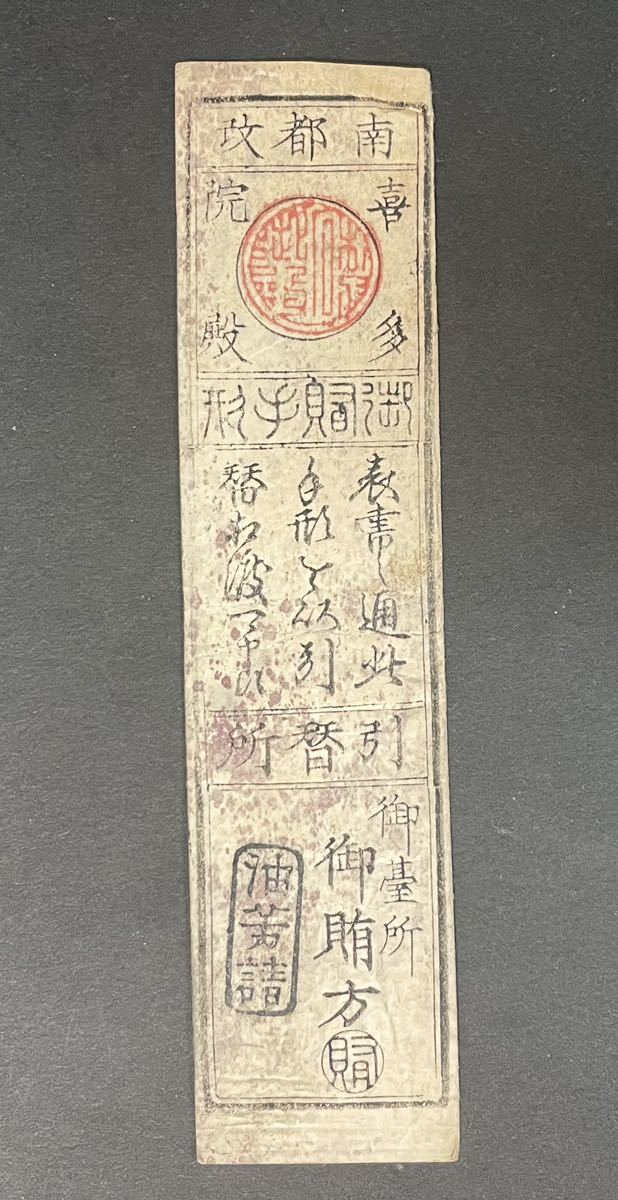 南都政
喜多
院殿
御賄手形
表書之通此
手形を以引
替相渡可申候
引替所
御臺所
御賄方
賄
油
請